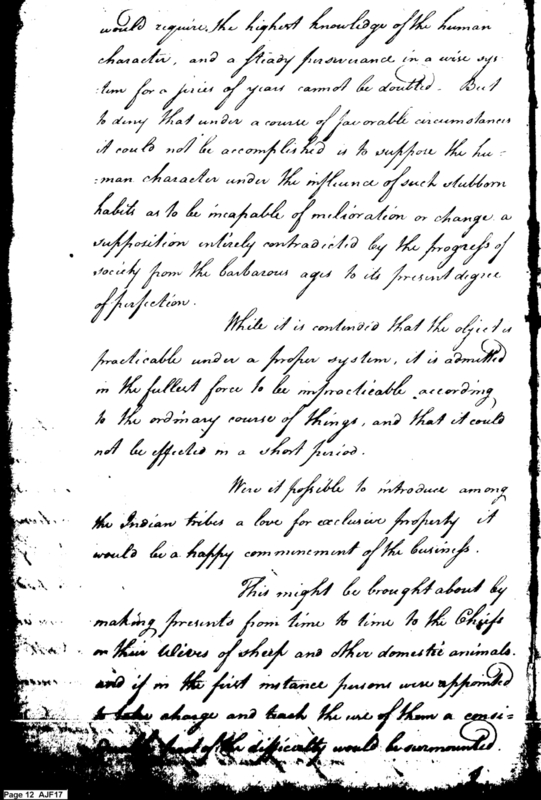 would require the highest knowledge of the human
character, and a steady perseverance in a wise sys-
tem for a series of years cannot be doubted. But
to deny that under a course of favorable circumstances
it could not be accomplished is to suppose the hu-
-man character under the influence of such stubborn
habits as to be incapable of melioration or change a
supposition entirely contradicted by the progress of
society from the barbarous ages to its present degree
of perfection.
While it is contended that the object is
practicable under a proper system, it is admitted
in the fullest force to be impracticable according
to the ordinary course of things, and that it could
not be effected in a short period.
Were it possible to introduce among
the Indian tribes a love for exclusive property it
would be a happy commencement of the business.
This might be brought about by
making presents from time to time to the Chiefs
or their Wives of sheep and other domestic animals.
and if in the first instance persons were appointed
to take charge and teach the use of them a consi-
derable part of the difficulty would be surmounted.
Page 12 AJF17